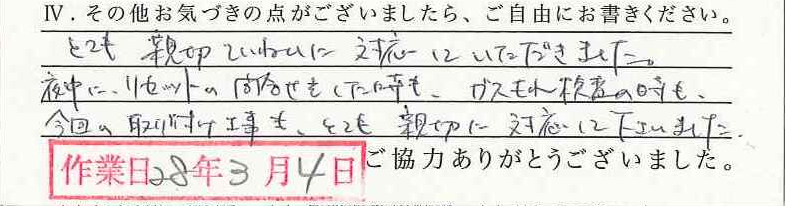 Ⅳ．その他お気づきの点がございましたら、ご自由にお書きください。
とても 親切ていねいに 対応していただきました。
夜中に、リセットの問合せをした時も、ガスもれ検査の時も、
今回の取り付け工事も、とても 親切に 対応して下さいました。
作業日28年3月4日
ご協力ありがとうございました。